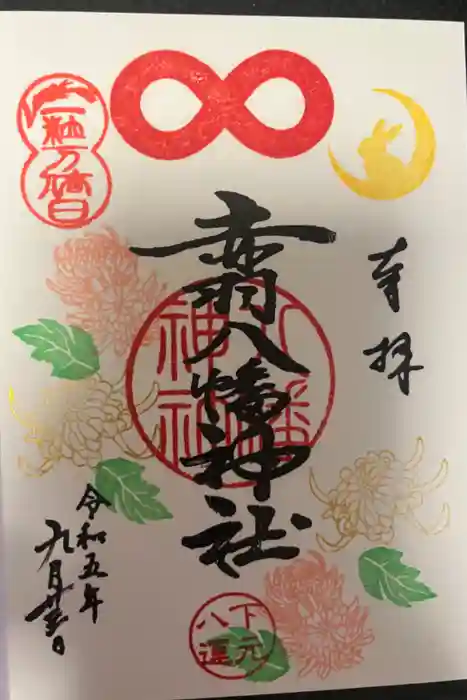 一粒万倍日
奉拝
赤羽八幡神社
八幡
神社
令和五年
九月
下元
八運